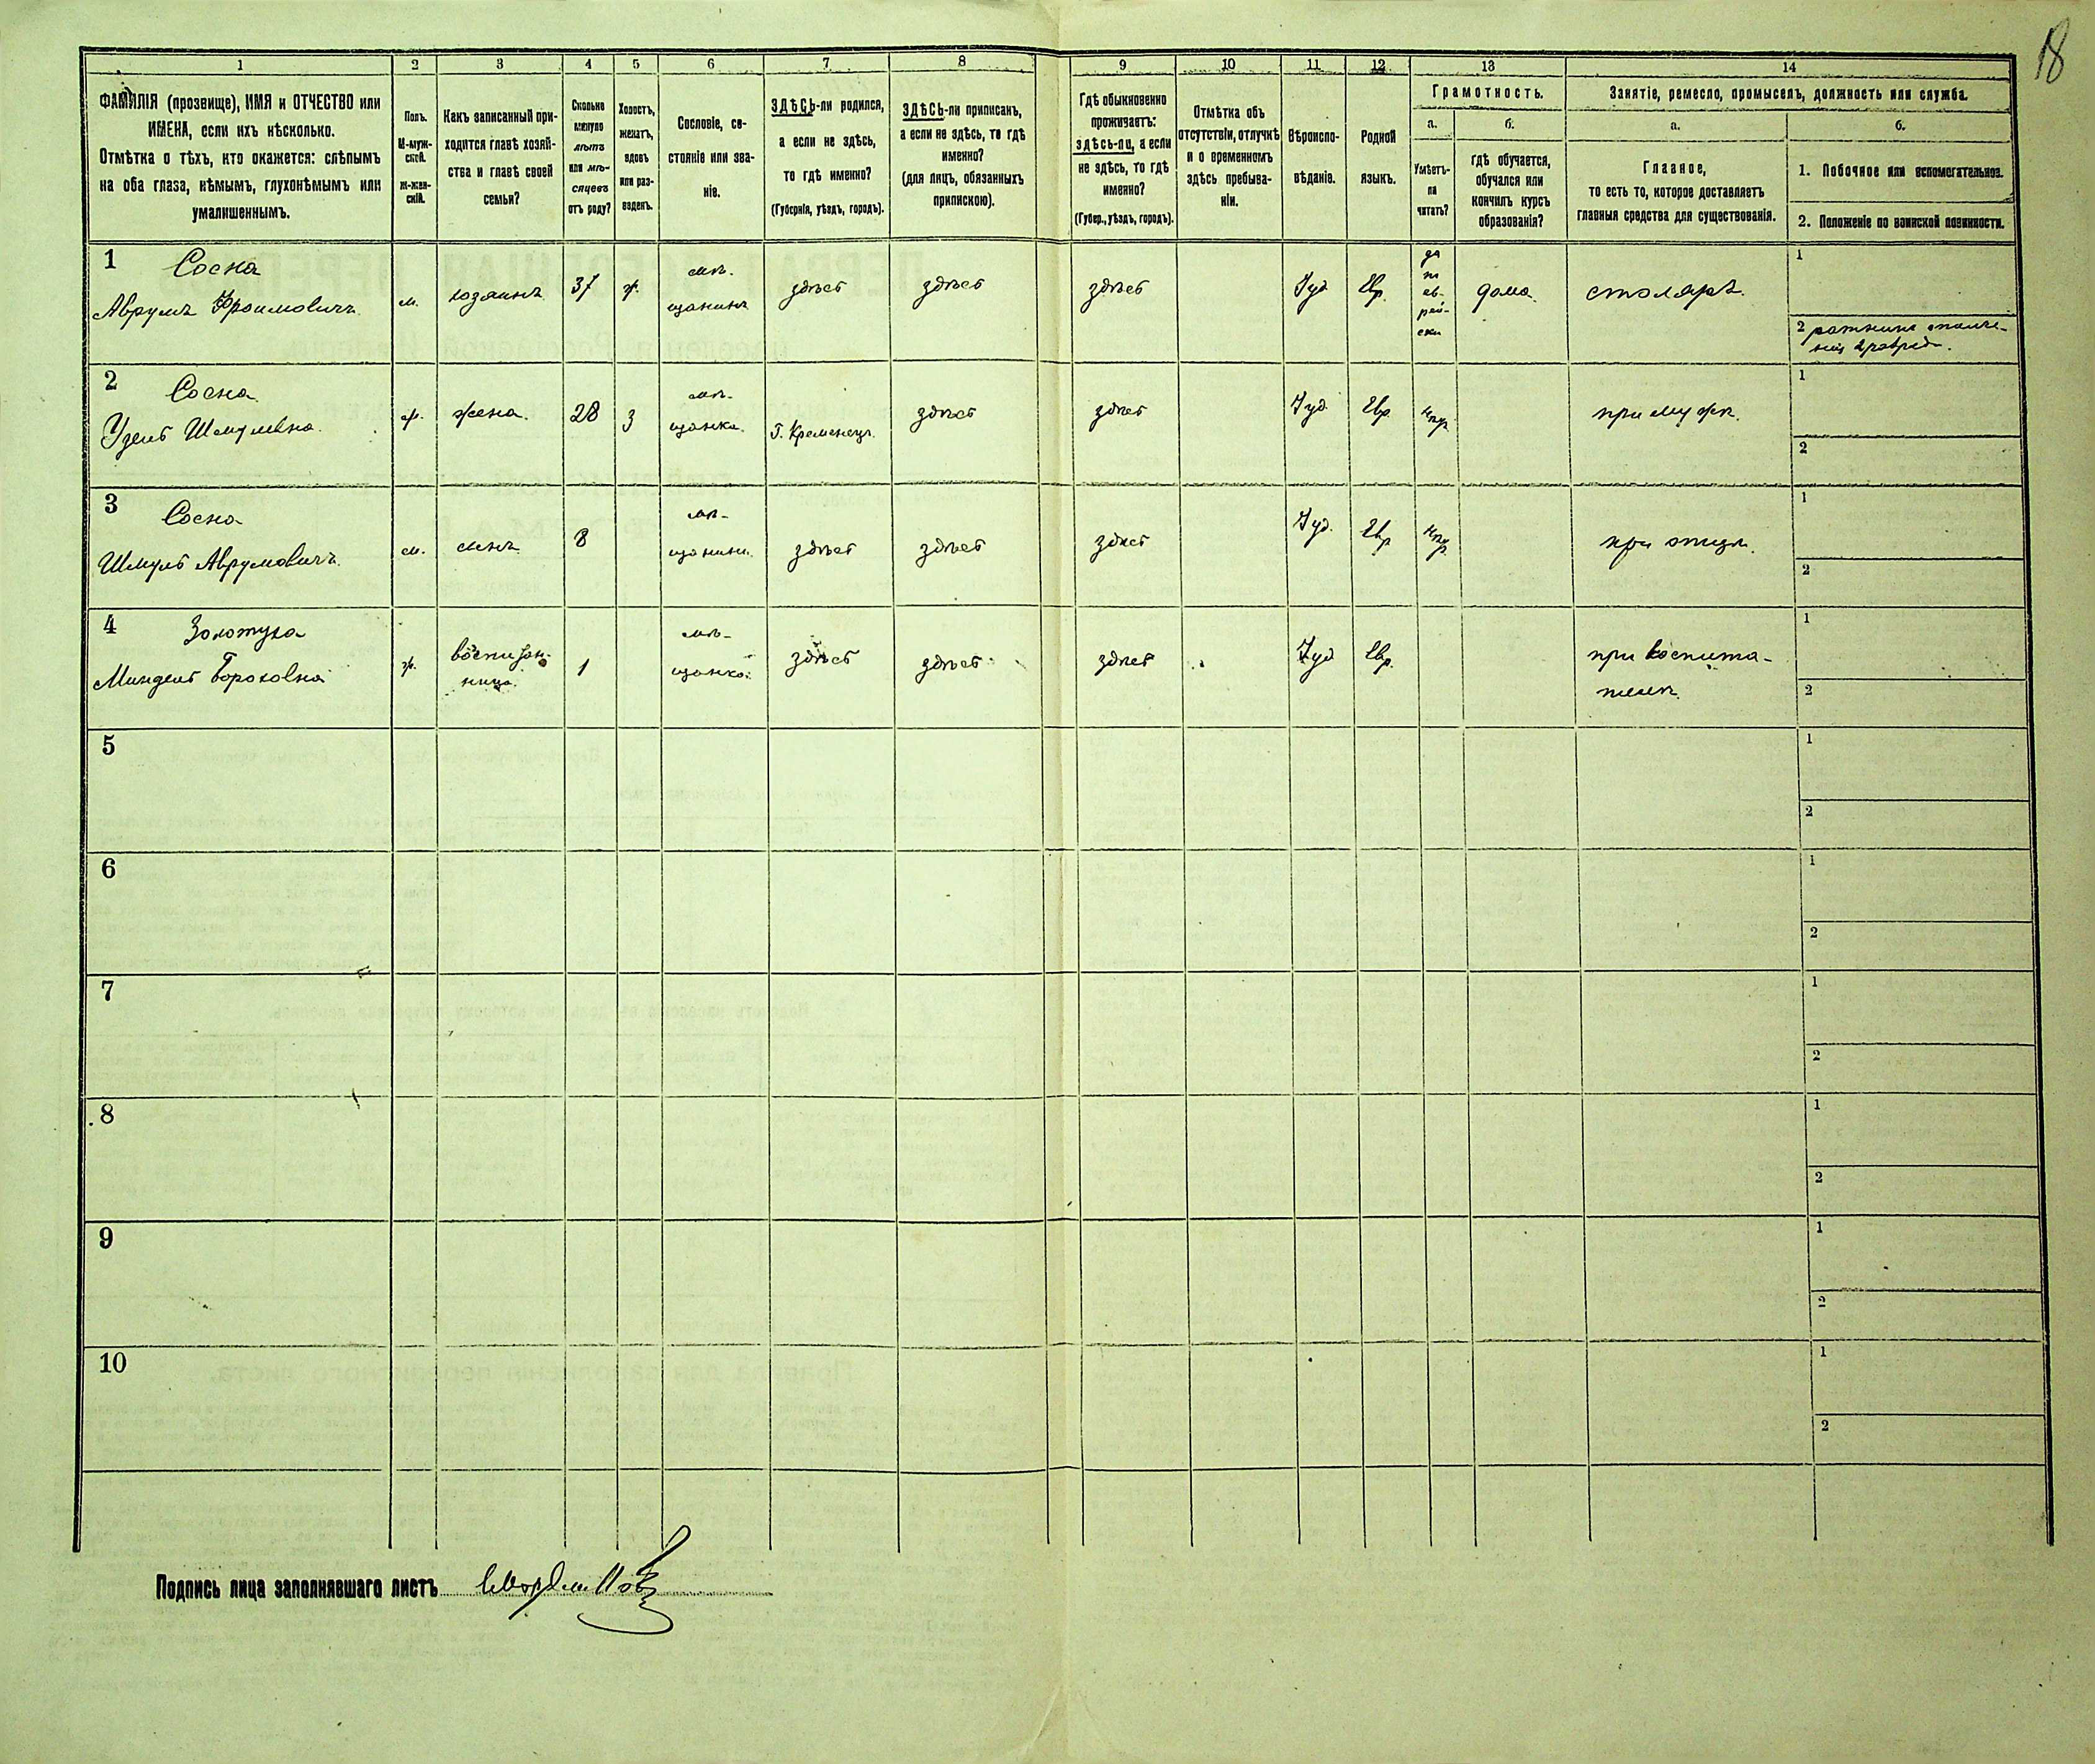 18
1 2 3 4 5 6 7 8 9 10 11 12 13 14
ФАМИЛІЯ (прозвище), ИМЯ и ОТЧЕСТВО или
ИМЕНА, если ихъ нѣсколько.
Отмѣтка о тѣхъ, кто окажется: слѣпымъ
на оба глаза, нѣмымъ, глухонѣмымъ или
умалишеннымъ.
Полъ.
М-муж-
ской.
ж-жен-
скій.
Какъ записанный при-
ходится главѣ хозяй-
ства и главѣ своей
семьи?
Сколько
минуло
лѣтъ
или мѣ-
сяцевъ
отъ роду?
Холостъ,
женатъ,
вдовъ
или раз-
веденъ.
Сословіе, со-
стояніе или зва-
ніе.
ЗДѢСЬ-ли родился,
а если не здѣсь,
то гдѣ именно?
(Губернія, уѣздъ, городъ).
ЗДѢСЬ-ли приписанъ,
а если не здѣсь, то гдѣ
именно?
(для лицъ, обязанныхъ
припискою).
Гдѣ обыкновенно
проживаетъ:
здѣсь-ли, а если
не здѣсь, то гдѣ
именно?
(Губер., уѣздъ, городъ).
Отмѣтка объ
отсутствіи, отлучкѣ
и о временномъ
здѣсь пребыва-
ніи.
Вѣроиспо-
вѣданіе.
Родной
языкъ.
Грамотность.
а.
Умѣетъ-
ли
читать?
б.
гдѣ обучается,
обучался или
кончилъ курсъ
образованія?
Занятіе, ремесло, промыселъ, должность или служба.
а.
Главное,
то есть то, которое доставляетъ
главныя средства для существованія.
б.
1. Побочное или вспомогательное.
2. Положеніе по воинской повинности.
1 Сосна
Аврумъ Фроимовичъ
м.
хозяинъ
37
ж.
мѣ-
щанинъ
здѣсь
здѣсь
здѣсь
Іуд
Евр.
да
по
ев-
рей-
ски
дома.
столяръ.
1
2 ратникъ ополче-
нія 2 разряда.
2 Сосна
Удель Шмулевна.
ж.
жена.
28
з
мѣ-
щанка.
г. Кременецъ.
здѣсь
здѣсь
Іуд
Евр.
нѣтъ
при мужѣ.
1
2
3 Сосна
Шмуль Аврумовичъ
м.
сынъ
8
мѣ-
щанин.
здѣсь
здѣсь
здѣсь
Іуд.
Евр
нѣтъ
при отцѣ.
1
2
4 Золотуха
Миндель Бороховна
ж.
воспитан-
ница.
1
мѣ-
щанка.
здѣсь
здѣсь
здѣсь
Іуд
Евр.
при воспита-
телѣ.
1
2
5
1
2
6
1
2
7
1
2
8
1
2
9
1
2
10
1
2
Подпись лица заполнявшаго листъ